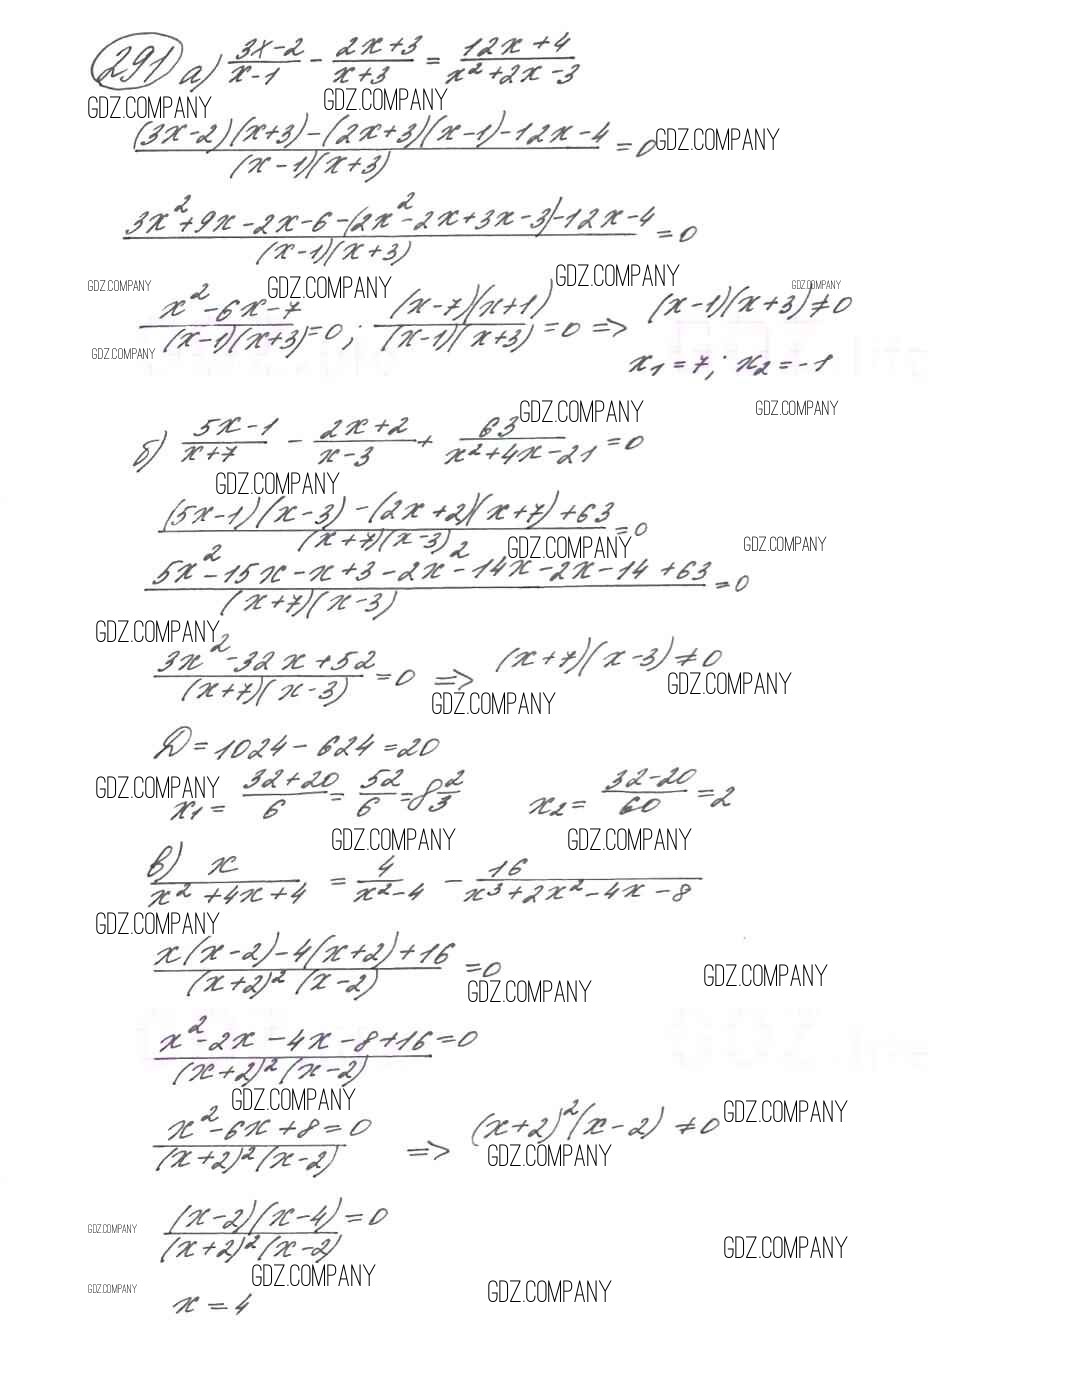 291 а) (3x-2)/(x-1) - (2x+3)/(x+3) = (12x+4)/(x²+2x-3)
GDZ.COMPANY GDZ.COMPANY
((3x-2)(x+3)-(2x+3)(x-1)-12x-4)/((x-1)(x+3)) = 0 GDZ.COMPANY
(3x²+9x-2x-6-(2x²-2x+3x-3)-12x-4)/((x-1)(x+3)) = 0
GDZ.COMPANY GDZ.COMPANY GDZ.COMPANY GDZ.COMPANY
(x²-6x-7)/((x-1)(x+3)) = 0; ((x-7)(x+1))/((x-1)(x+3)) = 0 => (x-1)(x+3)≠0
GDZ.COMPANY
x₁=7; x₂=-1
GDZ.COMPANY GDZ.COMPANY
б) (5x-1)/(x+7) - (2x+2)/(x-3) + 63/(x²+4x-21) = 0
GDZ.COMPANY
((5x-1)(x-3)-(2x+2)(x+7)+63)/((x+7)(x-3)) = 0
GDZ.COMPANY GDZ.COMPANY
(5x²-15x-x+3-2x²-14x-2x-14+63)/((x+7)(x-3)) = 0
GDZ.COMPANY
(3x²-32x+52)/((x+7)(x-3)) = 0 => (x+7)(x-3)≠0
GDZ.COMPANY GDZ.COMPANY
D=1024-624=20
GDZ.COMPANY
x₁= (32+20)/6 = 52/6 = 8 2/3 x₂= (32-20)/60 = 2
GDZ.COMPANY GDZ.COMPANY
в) x/(x²+4x+4) = 4/(x²-4) - 16/(x³+2x²-4x-8)
GDZ.COMPANY
(x(x-2)-4(x+2)+16)/((x+2)²(x-2)) = 0
GDZ.COMPANY GDZ.COMPANY
(x²-2x-4x-8+16)/((x+2)²(x-2)) = 0
GDZ.COMPANY GDZ.COMPANY
(x²-6x+8)/((x+2)²(x-2)) = 0 => (x+2)²(x-2)≠0
GDZ.COMPANY
((x-2)(x-4))/((x+2)²(x-2)) = 0
GDZ.COMPANY GDZ.COMPANY
GDZ.COMPANY GDZ.COMPANY GDZ.COMPANY
x=4